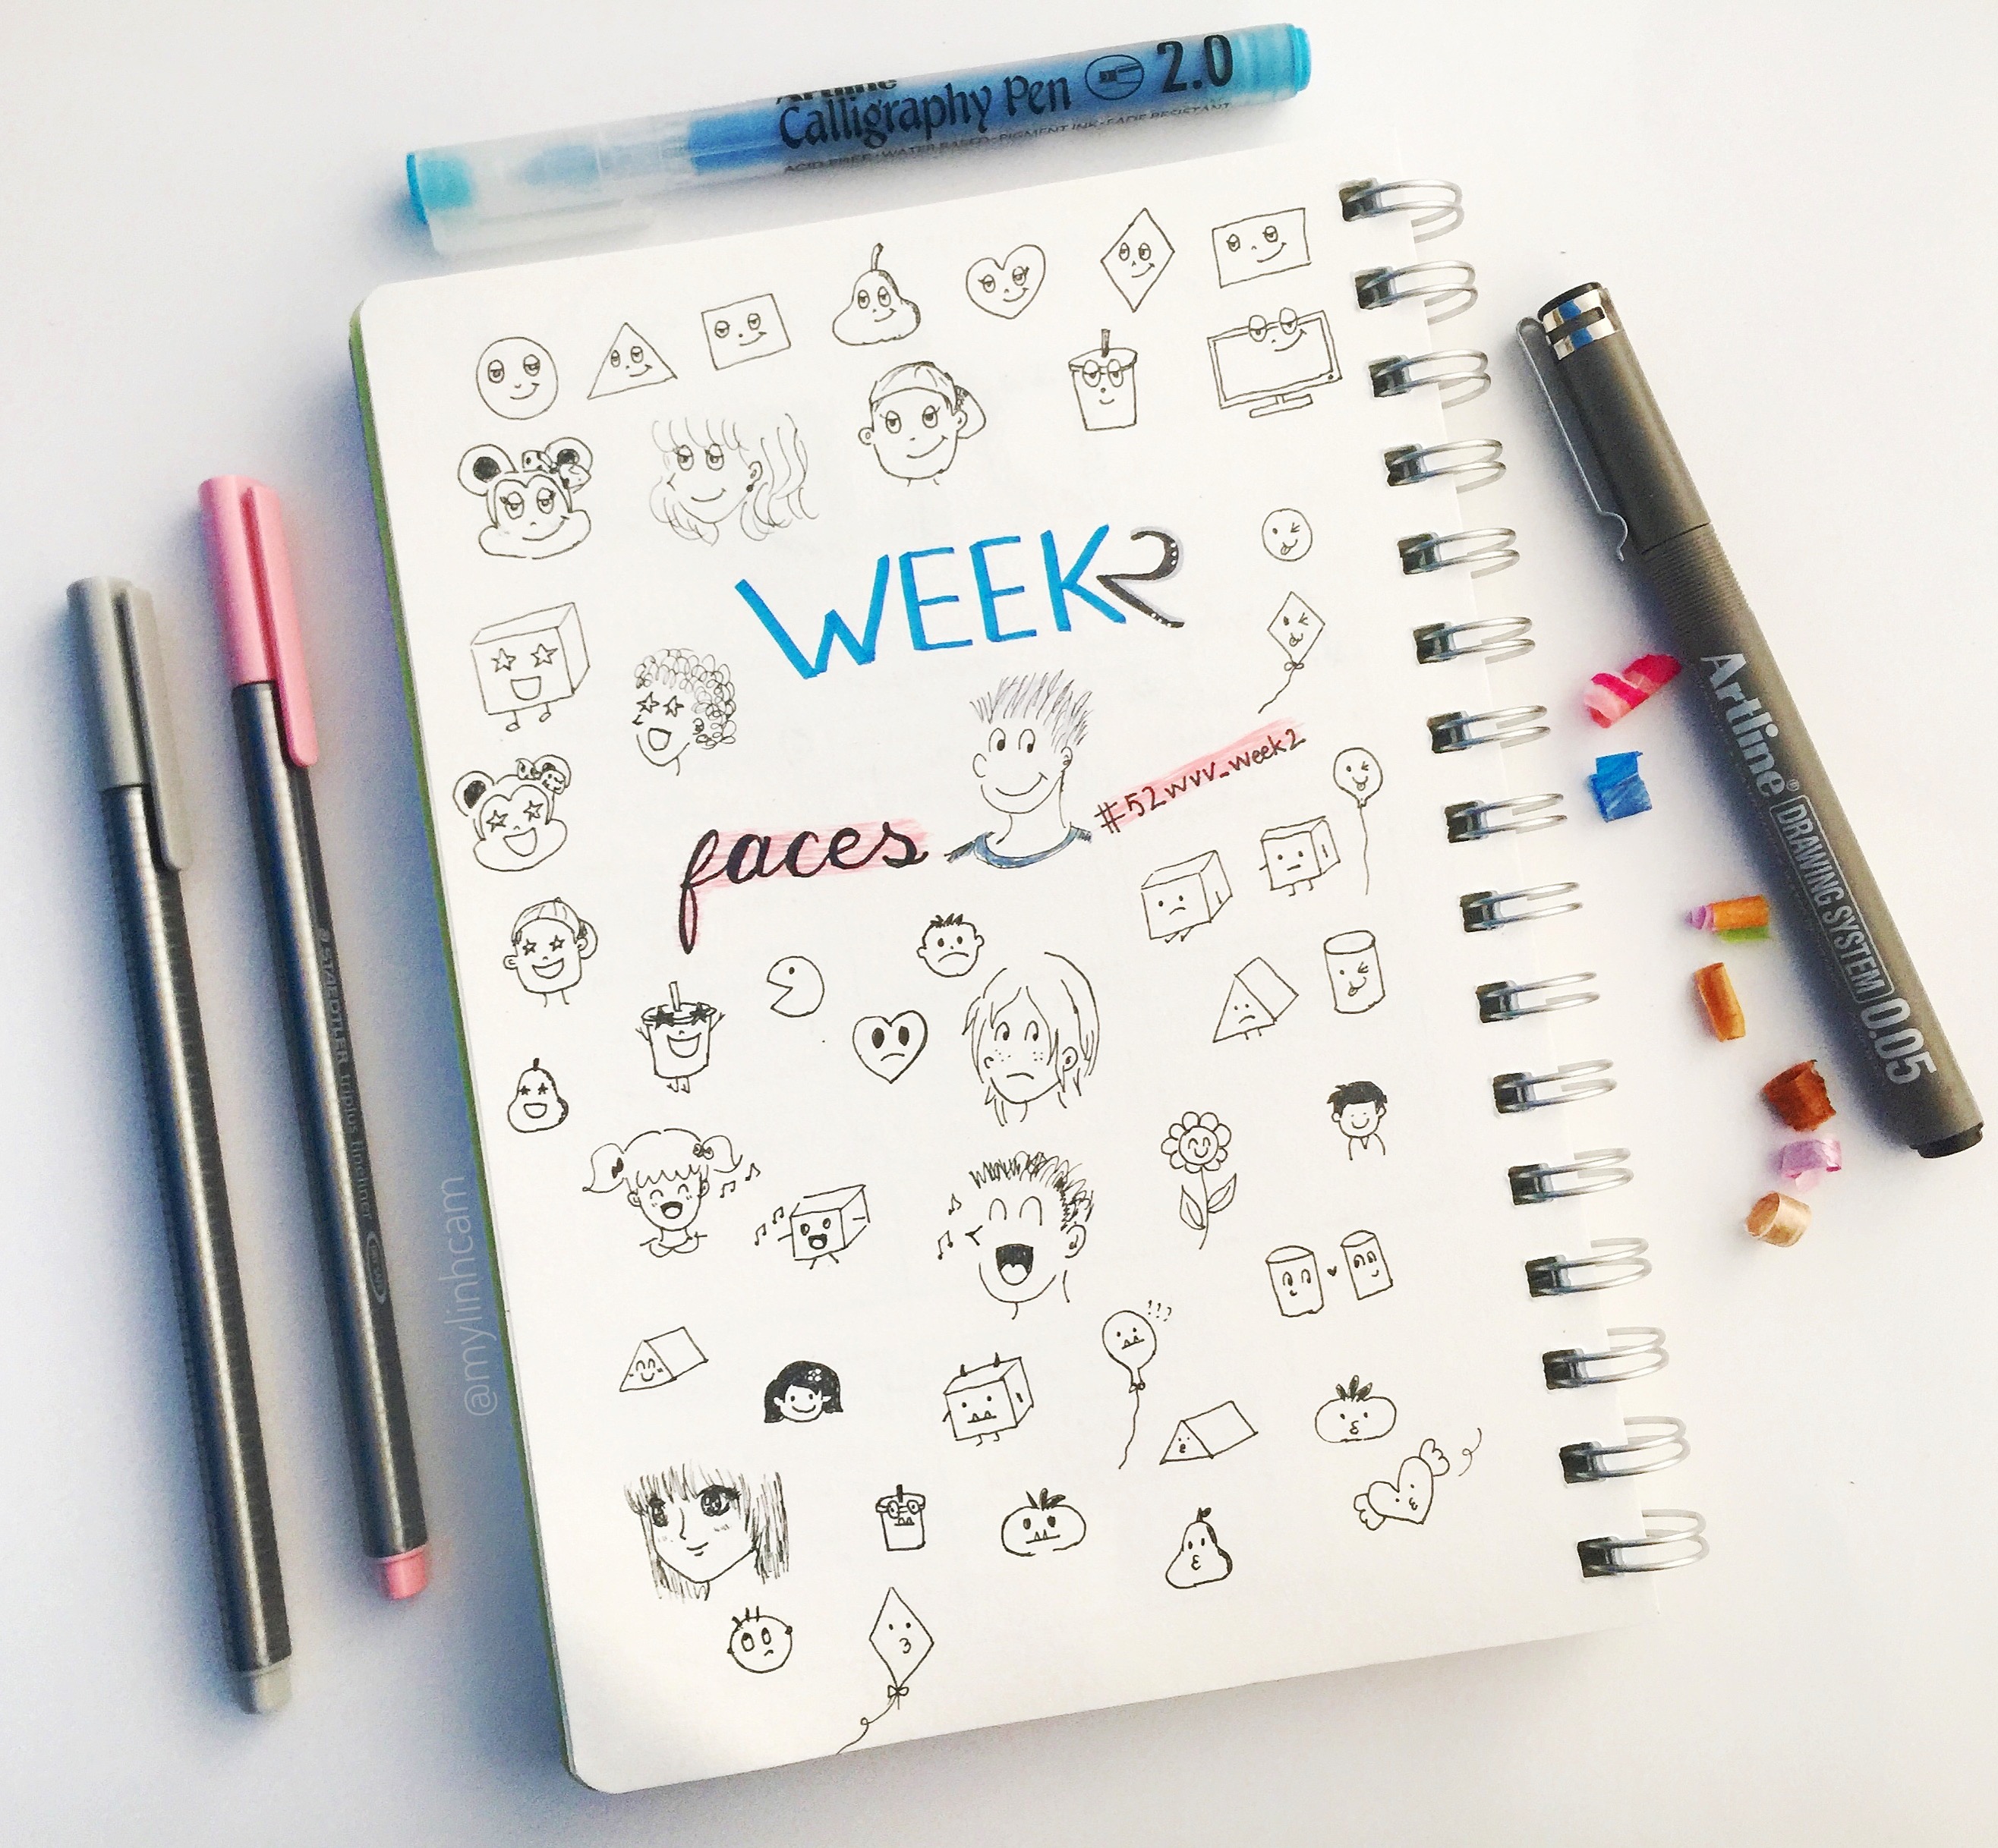 Artline
Calligraphy Pen 2.0
ACID FREE • WATER BASED • PIGMENT INK • FADE RESISTANT
WEEK 2
faces
#52wvv_week2
Artline® DRAWING SYSTEM 0.05
STAEDTLER triplus fineliner
@mylinhcam